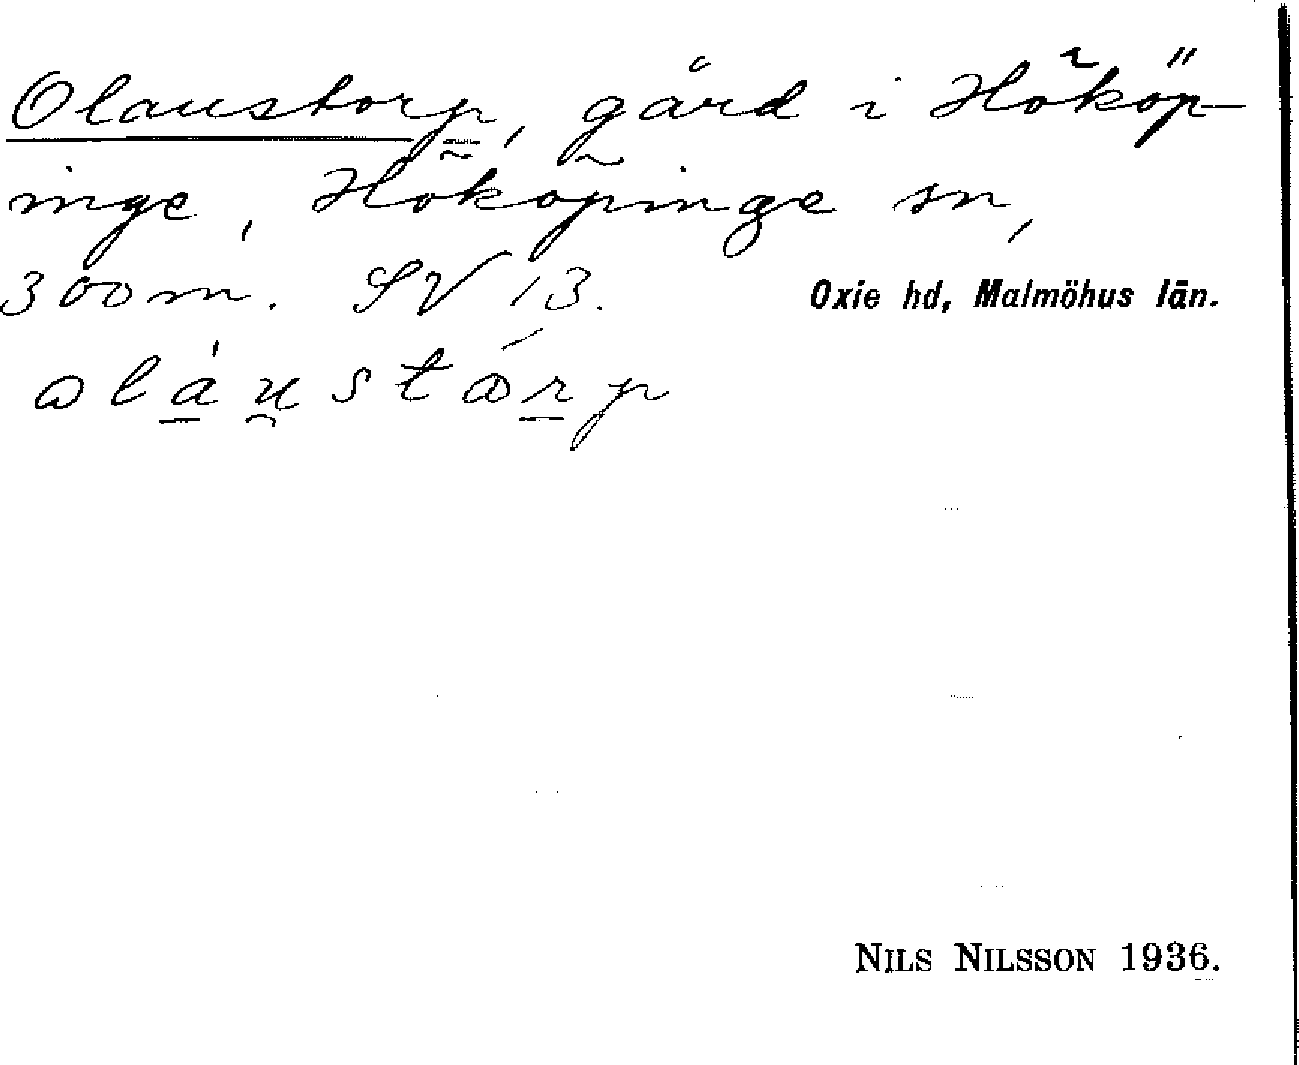 Olaustorp, gård i Hököp-
inge, Hököpinge sn,
300 m. SV 13. Oxie hd, Malmöhus län.
ɷláu̯stɷ́rp
NILS NILSSON 1936.